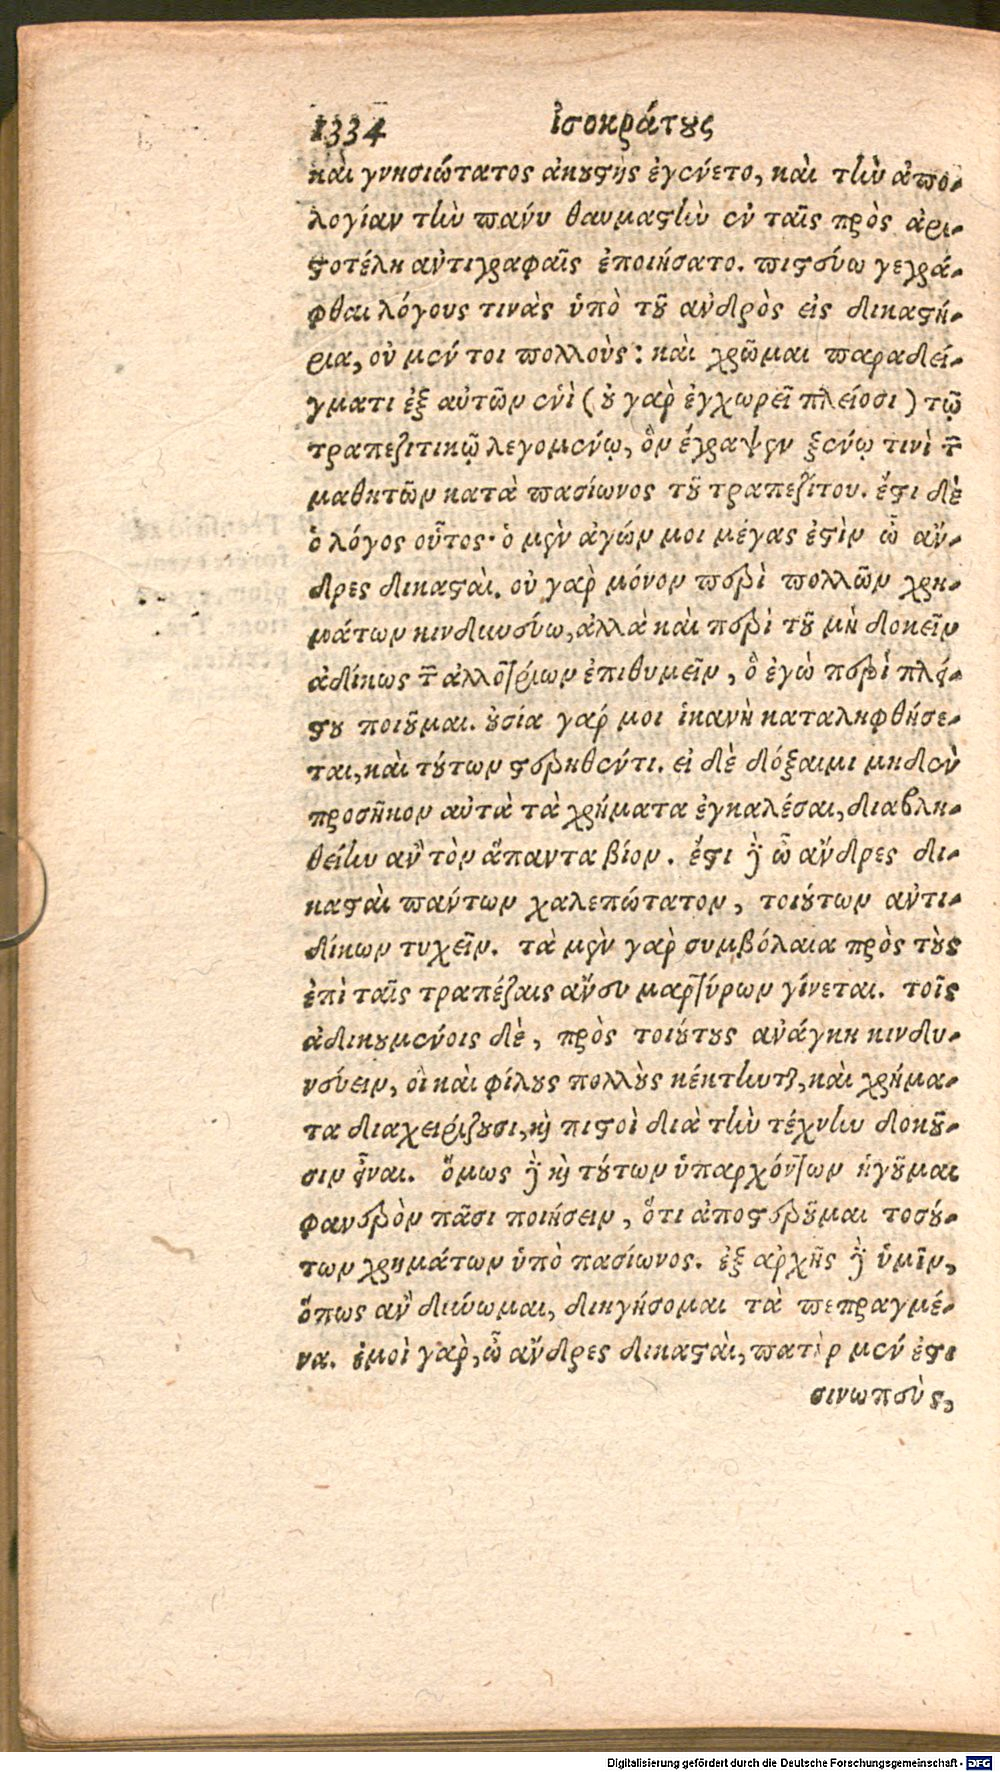 1334 ἰσοκράτους
καὶ γνησιώτατος ἀκουστὴς ἐγένετο, καὶ τὴν ἀπο-
λογίαν τὴν πάνυ θαυμαστὴν ἐν ταῖς πρὸς ἀρι-
στοτέλη ἀντιγραφαῖς ἐποιήσατο. πιστεύω γεγρά-
φθαι λόγους τινὰς ὑπὸ τοῦ ἀνδρὸς εἰς δικαστή-
ρια, οὐ μέν τοι πολλούς: καὶ χρῶμαι παραδεί-
γματι ἐξ αὐτῶν ἑνὶ (οὐ γὰρ ἐγχωρεῖ πλείοσι) τῷ
τραπεζιτικῷ λεγομένῳ, ὃν ἔγραψεν ξένῳ τινὶ τῶν
μαθητῶν κατὰ πασίωνος τοῦ τραπεζίτου. ἔστι δὲ
ὁ λόγος οὗτος· ὁ μὲν ἀγών μοι μέγας ἐστὶν ὦ ἄν-
δρες δικασταὶ. οὐ γὰρ μόνον περὶ πολλῶν χρη-
μάτων κινδυνεύω, ἀλλὰ καὶ περὶ τοῦ μὴ δοκεῖν
ἀδίκως τῶν ἀλλοτρίων ἐπιθυμεῖν, ὃ ἐγὼ περὶ πλεί-
στου ποιοῦμαι. οὐσία γάρ μοι ἱκανὴ καταληφθήσε-
ται, καὶ τούτων στερηθέντι. εἰ δὲ δόξαιμι μηδὲν
προσῆκον αὐτὰ τὰ χρήματα ἐγκαλέσαι, διαβλη-
θείην ἂν τὸν ἅπαντα βίον. ἔστι δ' ὦ ἄνδρες δι-
κασταὶ πάντων χαλεπώτατον, τοιούτων ἀντι-
δίκων τυχεῖν. τὰ μὲν γὰρ συμβόλαια πρὸς τοὺς
ἐπὶ ταῖς τραπέζαις ἄνευ μαρτύρων γίνεται. τοῖς
ἀδικουμένοις δὲ, πρὸς τοιούτους ἀνάγκη κινδυ-
νεύειν, οἳ καὶ φίλους πολλοὺς κέκτηνται, καὶ χρήμα-
τα διαχειρίζουσι, καὶ πιστοὶ διὰ τὴν τέχνην δοκοῦ-
σιν εἶναι. ὅμως δὲ καὶ τούτων ὑπαρχόντων ἡγοῦμαι
φανερὸν πᾶσι ποιήσειν, ὅτι ἀποστεροῦμαι τοσού-
των χρημάτων ὑπὸ πασίωνος. ἐξ ἀρχῆς δὲ ὑμῖν,
ὅπως ἂν δύνωμαι, διηγήσομαι τὰ πεπραγμέ-
να. ἐμοὶ γὰρ, ὦ ἄνδρες δικασταὶ, πατὴρ μέν ἐστι
σινωπεὺς,
Digitalisierung gefördert durch die Deutsche Forschungsgemeinschaft - DFG